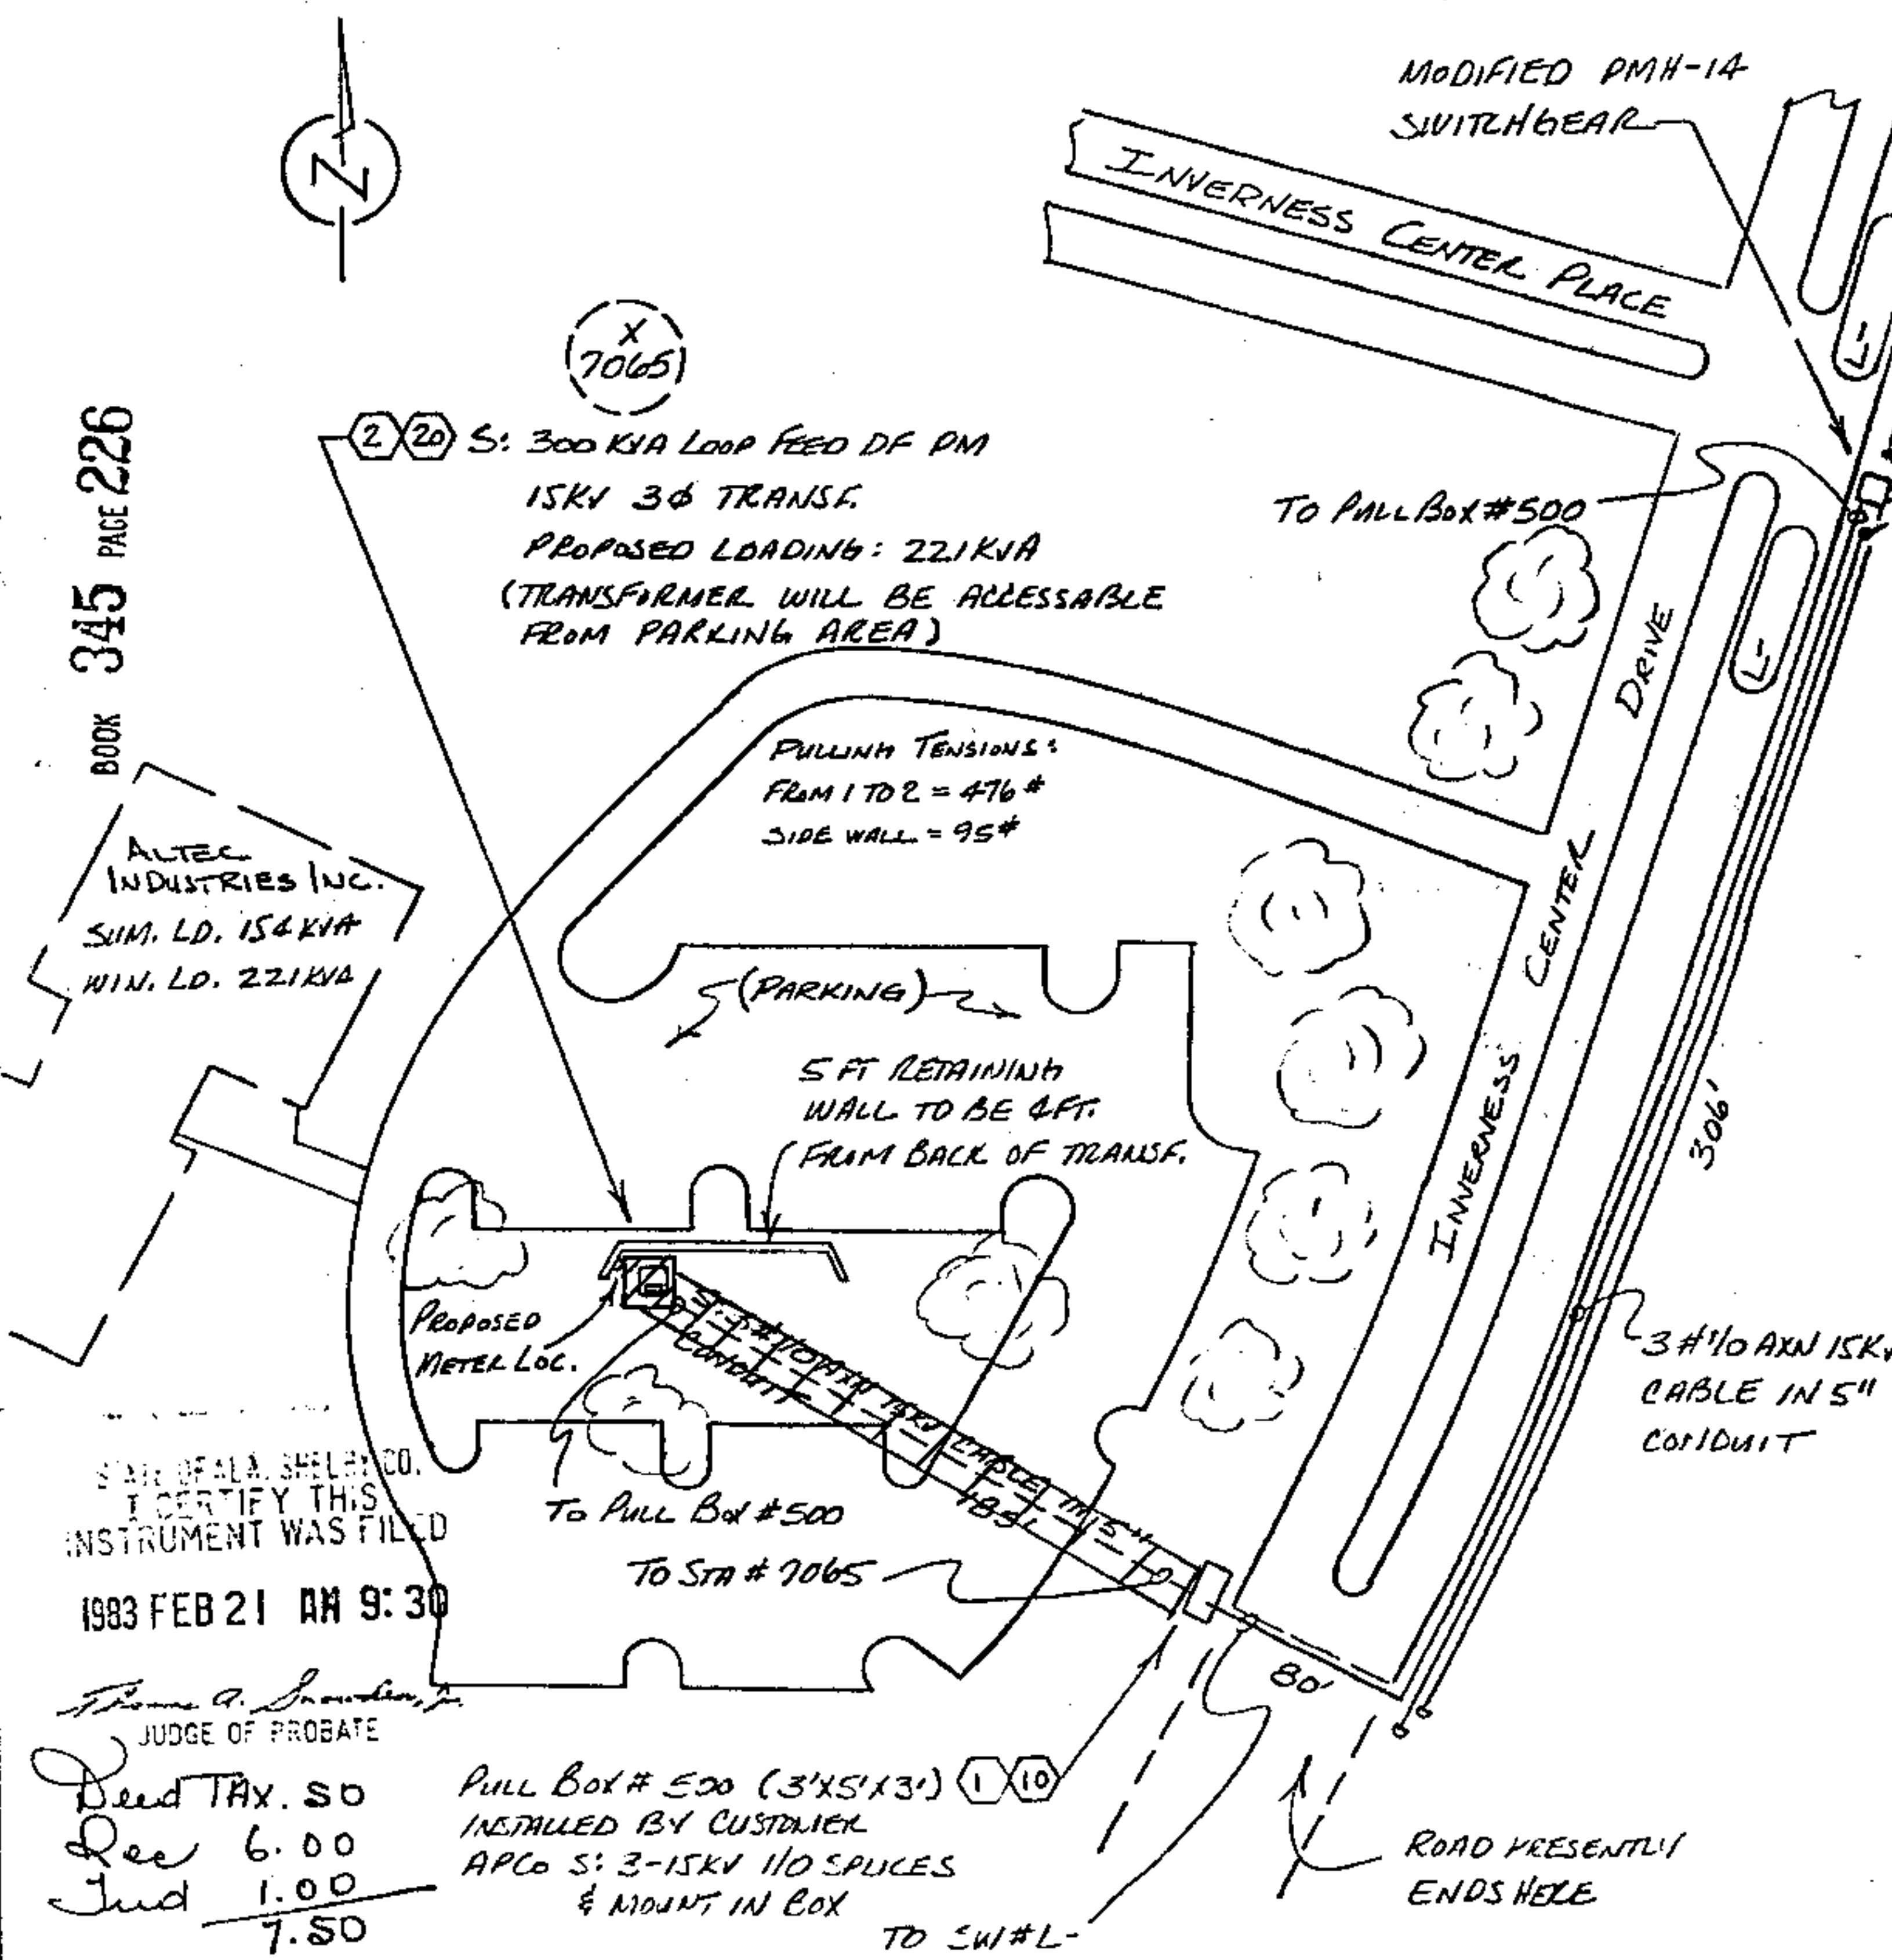 MODIFIED PMH-14
SWITCHGEAR
N
INVERNESS CENTER PLACE
X
7065
2 20 S: 300 KVA LOOP FEED DF PM
15KV 3φ TRANSF.
PROPOSED LOADING: 221KVA
(TRANSFORMER WILL BE ACCESSABLE
FROM PARKING AREA)
TO PULL BOX #500
BOOK 345 PAGE 226
INVERNESS CENTER DRIVE
L-
L-
PULLING TENSIONS:
FROM 1 TO 2 = 476#
SIDE WALL = 95#
ALTEC
INDUSTRIES INC.
SUM. LD. 154 KVA
WIN. LD. 221KVA
(PARKING)
5 FT RETAINING
WALL TO BE 4FT.
FROM BACK OF TRANSF.
306'
PROPOSED
METER LOC.
S: 3 #1/0 AXN 15KV CABLE IN 5"
CONDUIT
185'
3 #1/0 AXN 15KV
CABLE IN 5"
CONDUIT
STATE OF ALA. SHELBY CO.
I CERTIFY THIS
INSTRUMENT WAS FILED
1983 FEB 21 AM 9:30
Thomas A. Snowden, Jr.
JUDGE OF PROBATE
TO PULL BOX #500
TO STA #7065
80'
Deed TAX .50
Rec 6.00
Jud 1.00
7.50
PULL BOX # 500 (3'X5'X3') 1 10
INSTALLED BY CUSTOMER
APCO S: 3-15KV 1/0 SPLICES
& MOUNT IN BOX
TO SW#L-
ROAD PRESENTLY
ENDS HERE